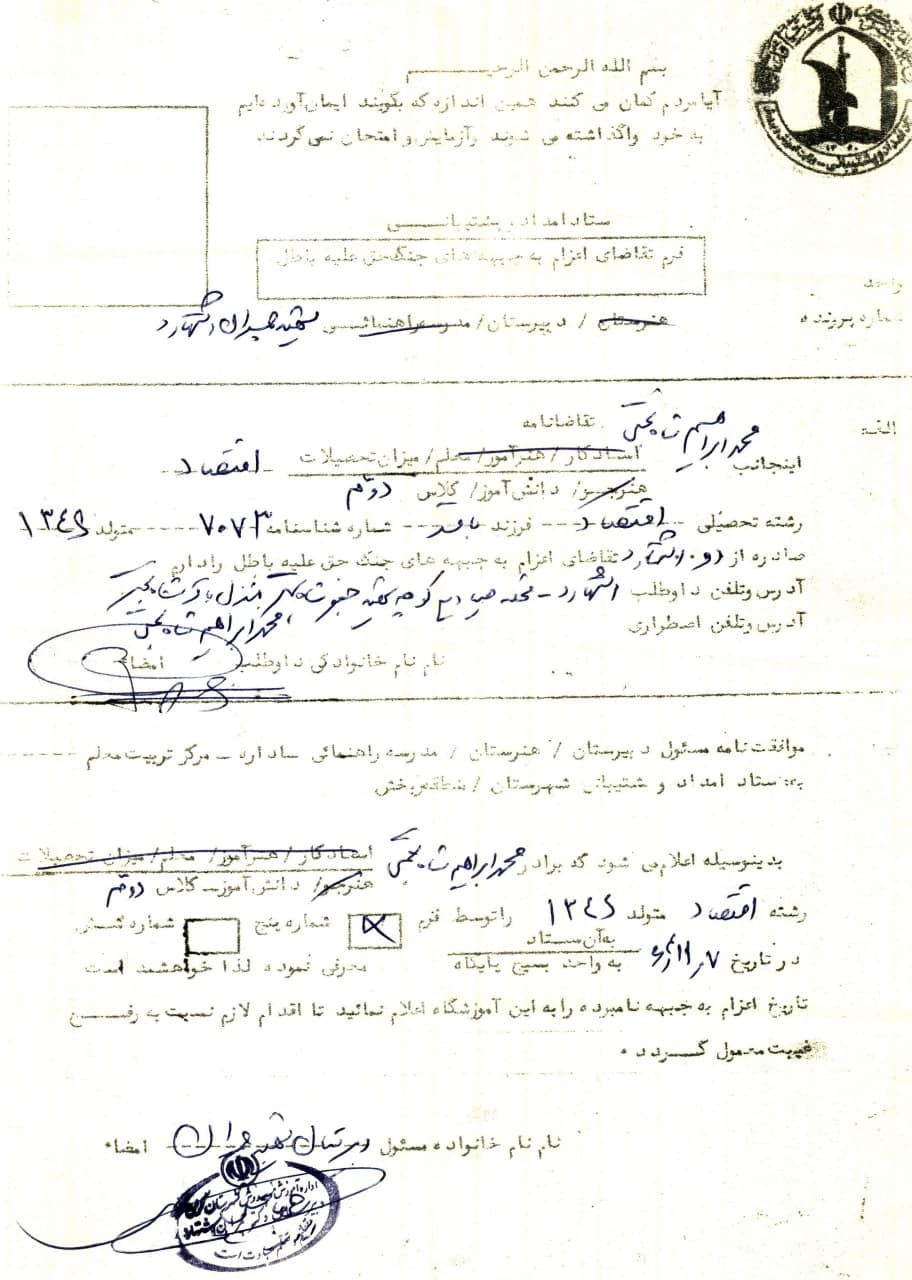 بسم الله الرحمن الرحیم
آیا مردم گمان می کنند همین اندازه که بگویند ایمان آورده ایم
به خود واگذاشته می شوند وآزمایش و امتحان نمی گردند
ستاد امداد و پشتیبانی
فرم تقاضای اعزام به جبهه های جنگ حق علیه باطل
واحد
شماره پرونده
هنرستان / دبیرستان / مدرسه راهنمائی شهید چمران اشتهارد
الف
تقاضانامه
اینجانب محمد ابراهیم شاه بختی استادکار / هنرآموز / معلم / میزان تحصیلات اقتصاد
هنرجو / دانش آموز / کلاس دوم
رشته تحصیلی اقتصاد فرزند باقر شماره شناسنامه ۷۰۷۳ متولد ۱۳۴۶
صادره از اشتهارد تقاضای اعزام به جبهه های جنگ حق علیه باطل را دارم
آدرس وتلفن داوطلب اشتهارد - محله کوچه شهید منزل باقر شاه بختی
آدرس وتلفن اضطراری
محمد ابراهیم شاه بختی
نام نام خانوادگی داوطلب امضاء
موافقت نامه مسئول دبیرستان / هنرستان / مدرسه راهنمائی - مرکز تربیت معلم
به: ستاد امداد و پشتیبانی شهرستان / منطقه / بخش
بدینوسیله اعلام می شود که برادر محمد ابراهیم شاه بختی استادکار / هنرآموز / معلم / میزان تحصیلات
هنرجو / دانش آموز - کلاس دوم
رشته اقتصاد متولد ۱۳۴۶ را توسط فرم شماره پنج شماره شش
به آن ستاد
در تاریخ به واحد بسیج پایگاه معرفی نموده لذا خواهشمند است
تاریخ اعزام به جبهه نامبرده را به این آموزشگاه اعلام نمائید تا اقدام لازم نسبت به رفع
غیبت معمول گردد .
نام نام خانواده مسئول دبیرستان شهید چمران امضاء